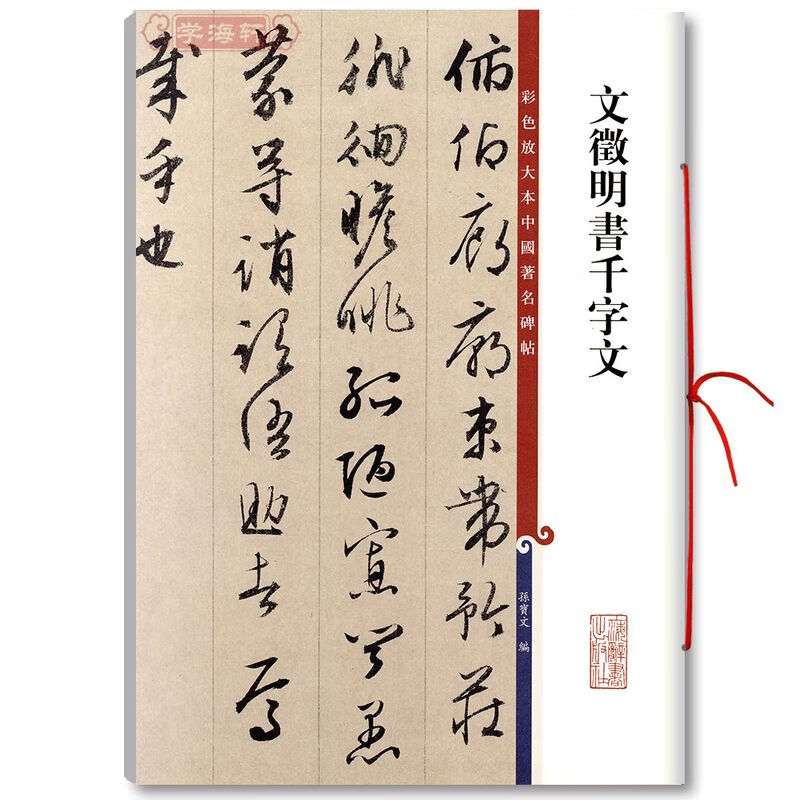 文徵明書千字文
彩色放大本中國著名碑帖
孫寶文 編
上海辭書出版社
俯仰廊廟束帶矜莊
徘徊瞻眺孤陋寡聞愚
蒙等誚謂語助者焉
哉乎也
学海轩